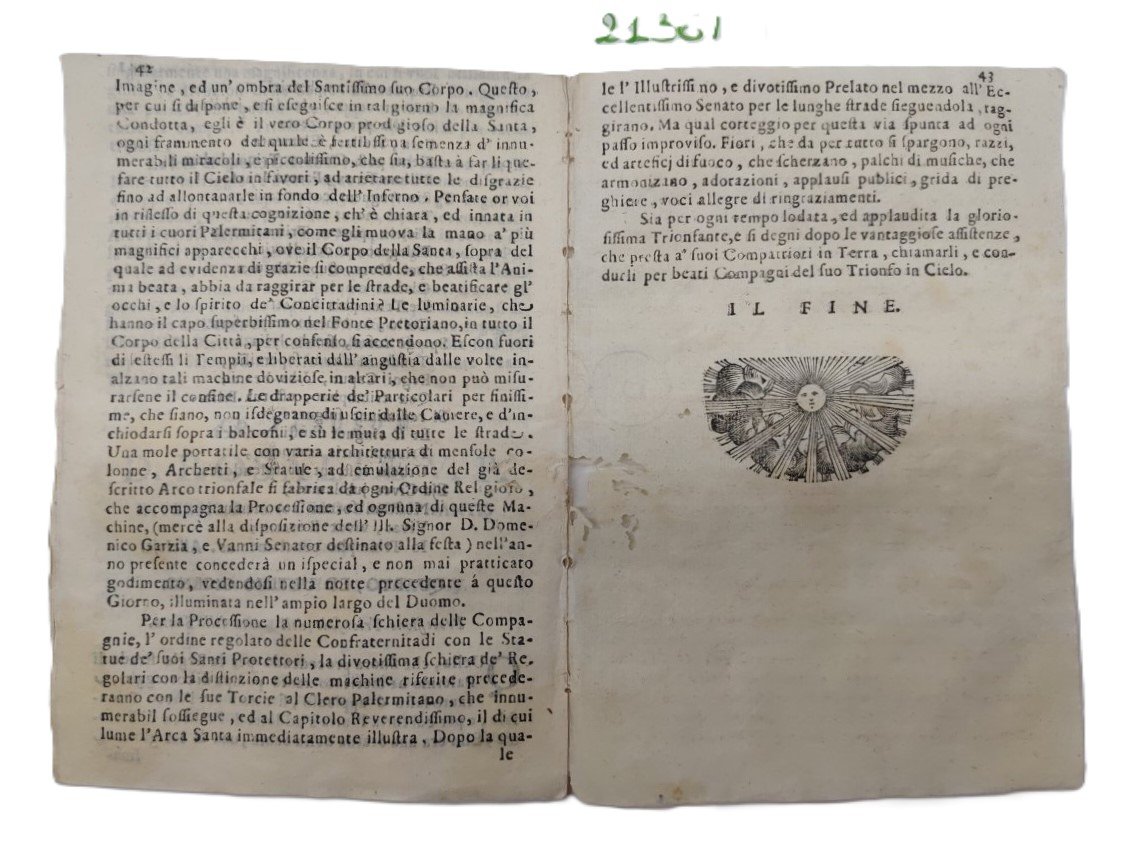 21301
42
Imagine, ed un' ombra del Santiſſimo ſuo Corpo. Queſto,
per cui ſi diſpone, e ſi eſeguiſce in tal giorno la magnifica
Condotta, egli è il vero Corpo prod gioſo della Santa,
ogni frammento del quale è fertiliſſima ſemenza d' innu-
merabili miracoli, e piccoliſſimo, che ſia, baſta à far li que-
fare tutto il Cielo in favori, ad arietare tutte le diſgrazie
fino ad allontanarle in fondo dell' Inferno. Penſate or voi
in rifleſſo di queſta cognizione, ch' è chiara, ed innata in
tutti i cuori Palermitani, come gli muova la mano a' più
magnifici apparecchi, ove il Corpo della Santa, ſopra del
quale ad evidenza di grazie ſi comprende, che aſſiſta l'Ani-
ma beata, abbia da raggirar per le ſtrade, e beatificare gl'
occhi, e lo ſpirito de' Concittadini? Le luminarie, che
hanno il capo ſuperbiſſimo nel Fonte Pretoriano, in tutto il
Corpo della Città, per conſenſo ſi accendono. Eſcon fuori
di ſe ſteſſi li Tempii, e liberati dall' anguſtia dalle volte in-
alzano tali machine dovizioſe in altari, che non può miſu-
rarſene il confine. Le drapperie de' Particolari per finiſſi-
me, che ſiano, non iſdegnano di uſcir dalle Camere, e d'in-
chiodarſi ſopra i balconi, e sù le mura di tutte le ſtrade.
Una mole portatile con varia architettura di menſole co-
lonne, Archetti, e Statue, ad emulazione del già de-
ſcritto Arco trionfale ſi fabrica da ogni Ordine Rel gioſo,
che accompagna la Proceſſione, ed ognuna di queſte Ma-
chine, (mercè alla diſpoſizione dell' Ill. Signor D. Dome-
nico Garzia, e Vanni Senator deſtinato alla feſta) nell'an-
no preſente concederà un iſpecial, e non mai pratticato
godimento, vedendoſi nella notte precedente á queſto
Giorno, illuminata nell' ampio largo del Duomo.
Per la Proceſſione la numeroſa ſchiera delle Compa-
gnie, l' ordine regolato delle Confraternitadi con le Sta-
tue de' ſuoi Santi Protettori, la divotiſſima ſchiera de' Re-
golari con la diſtinzione delle machine riferite precede-
ranno con le ſue Torcie al Clero Palermitano, che innu-
merabil ſoſſiegue, ed al Capitolo Reverendiſſimo, il di cui
lume l'Arca Santa immediatamente illuſtra. Dopo la qua-
le
43
le l' Illuſtriſſi no, e divotiſſimo Prelato nel mezzo all' Ec-
cellentiſſimo Senato per le lunghe ſtrade ſieguendola, rag-
girano. Ma qual corteggio per queſta via ſpunta ad ogni
paſſo improviſo. Fiori, che da per tutto ſi ſpargono, razzi,
ed artefici di fuoco, che ſcherzano, palchi di muſiche, che
armonizano, adorazioni, applauſi publici, grida di pre-
ghiere, voci allegre di ringraziamenti.
Sia per ogni tempo lodata, ed applaudita la glorio-
ſiſſima Trionfante, e ſi degni dopo le vantaggioſe aſſiſtenze,
che preſta a' ſuoi Compatrioti in Terra, chiamarli, e con-
ducli per beati Compagni del ſuo Trionfo in Cielo.
IL FINE.